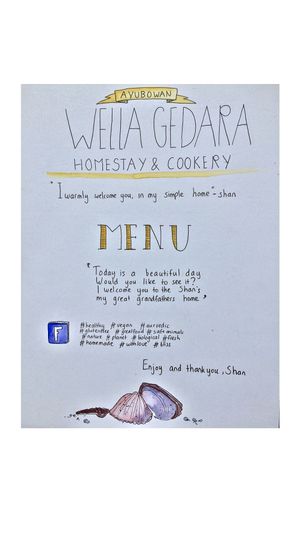 AYUBOWAN
WELLA GEDARA
HOMESTAY & COOKERY
"I warmly welcome you, in my simple home"-shan
MENU
"Today is a beautiful day
Would you like to see it?
I welcome you to the Shan's
my great grandfathers home"
F
#healthy #vegan #auryedic
#glutenfree #realfood #safe animals
#nature #planet #biological #fresh
#homemade #withlove #bliss
Enjoy and thankyou, Shan